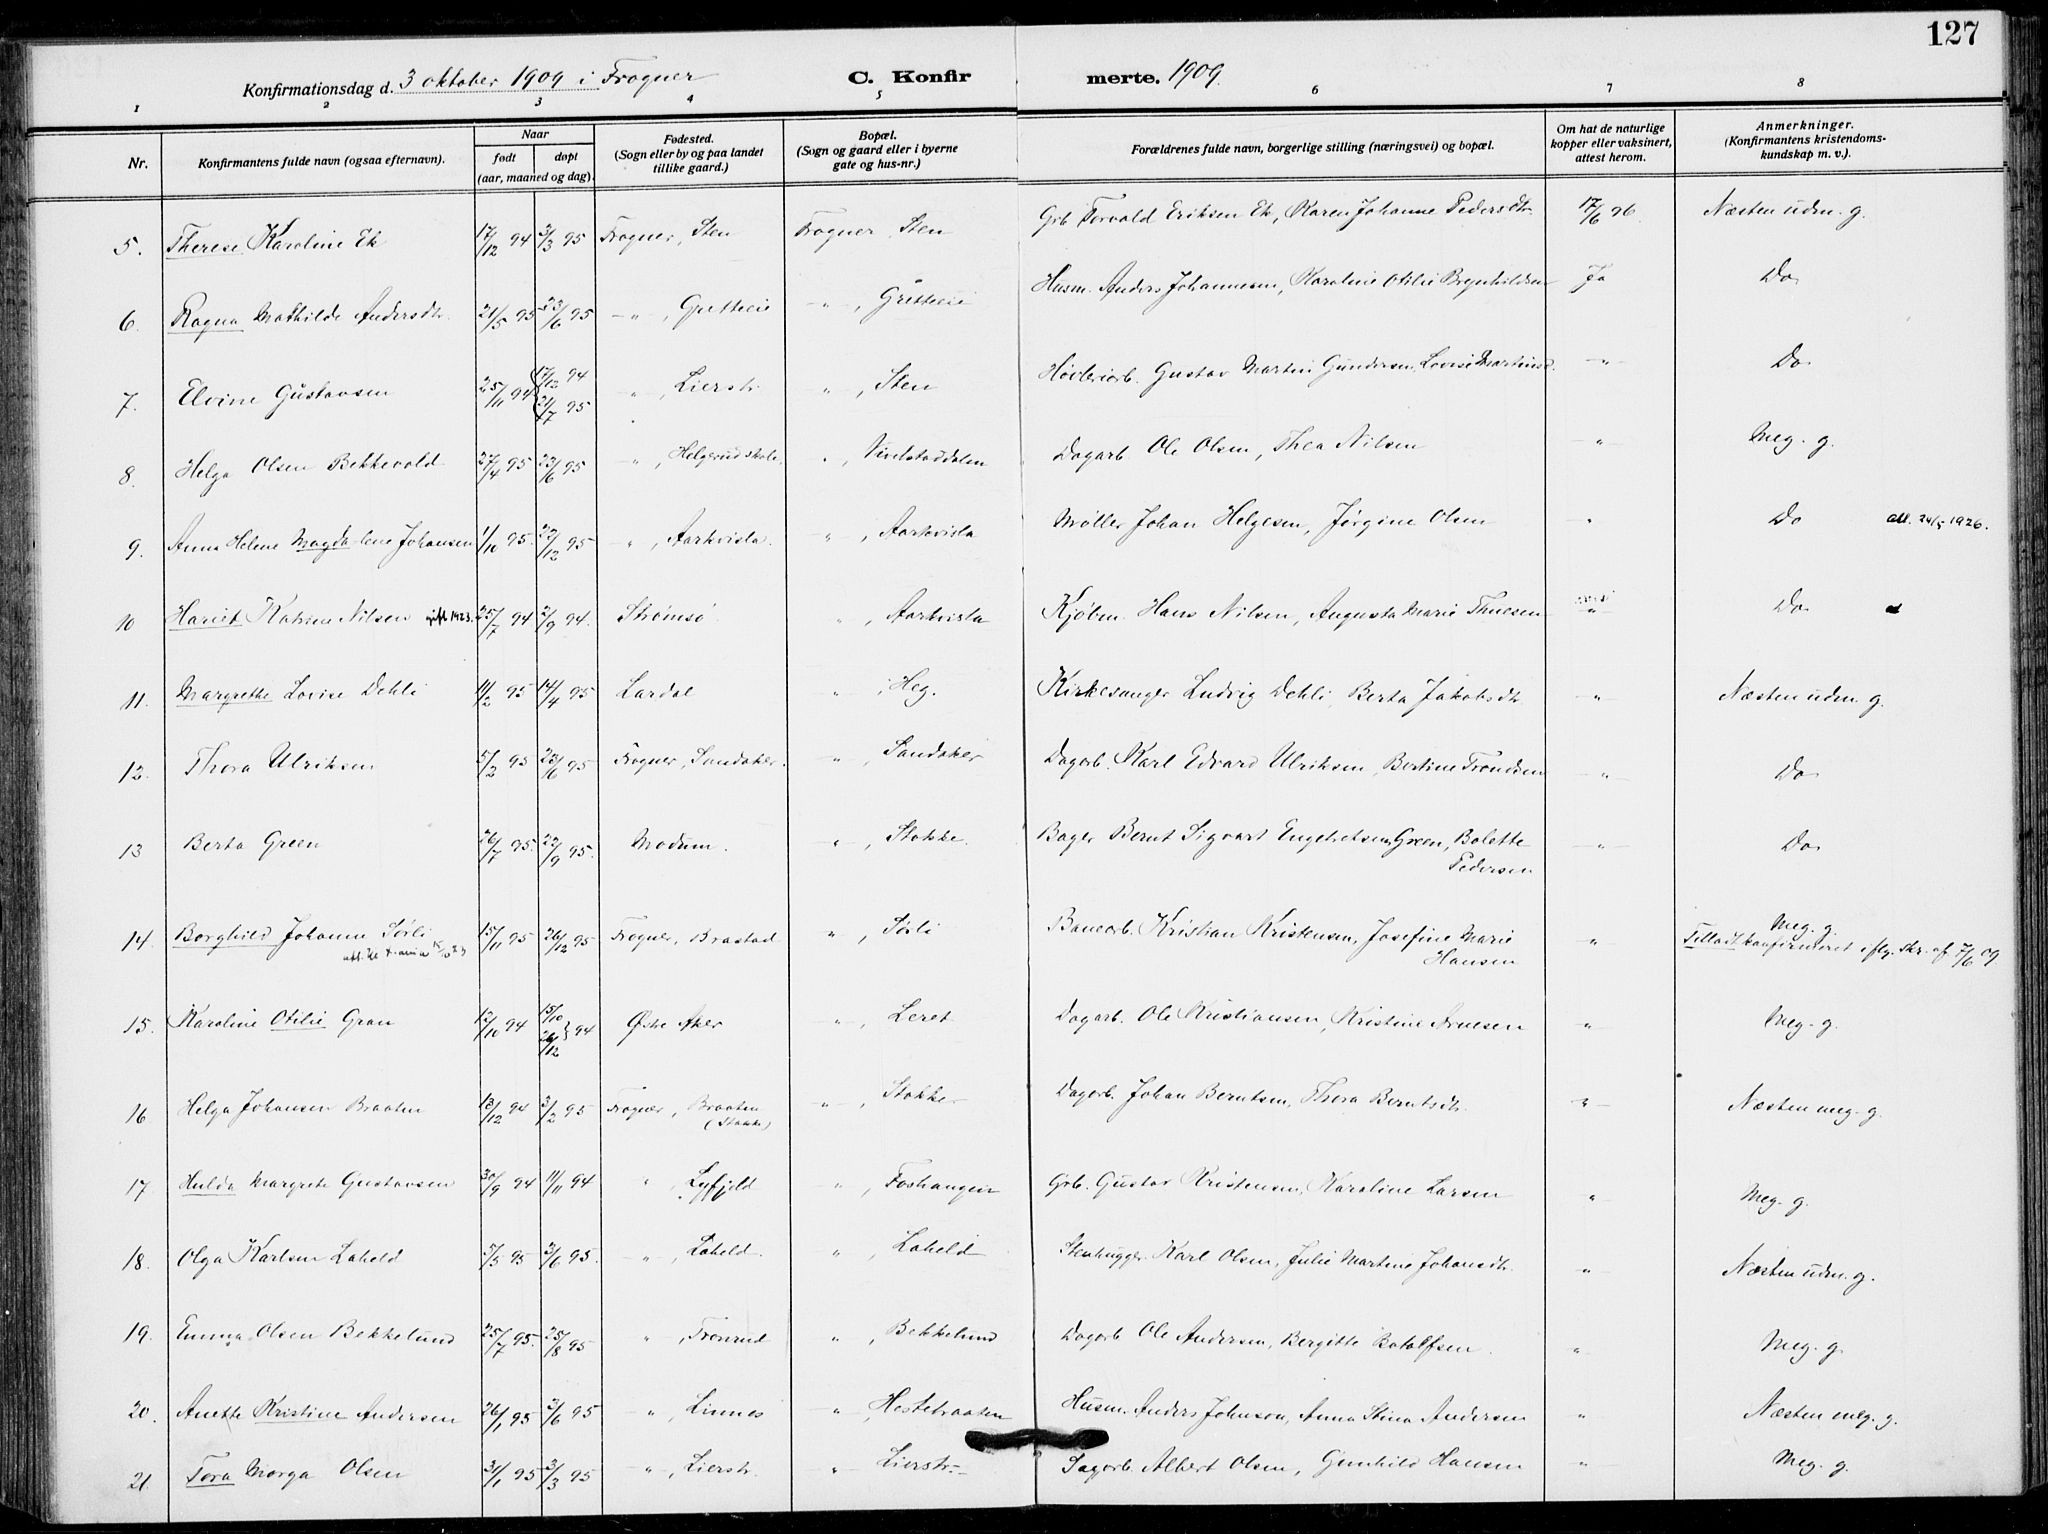 127
Konfirmationsdag d. 3 oktober 1909 i Frogner C. Konfirmerte. 1909.
1 2 3 4 5 6 7 8
Nr. Konfirmantens fulde navn (ogsaa efternavn). Naar født døpt (aar, maaned og dag). Fødested. (Sogn eller by og paa landet tillike gaard.) Bopæl. (Sogn og gaard eller i byerne gate og hus-nr.) Forældrenes fulde navn, borgerlige stilling (næringsvei) og bopæl. Om hat de naturlige kopper eller vaksinert, attest herom. Anmerkninger. (Konfirmantens kristendoms-kundskap m. v.).
5. Therese Karoline Ek 17/12 94 3/3 95 Frogner, Sten Frogner Sten Grb. Torvald Eriksen Ek, Karen Johanne Pedersdtr. 17/6 96. Næsten udm. g.
6. Ragna Mathilde Andersdtr. 21/5 95 23/6 95 -"-, Gretteeie -"-, Gretteeie Husm. Anders Johannesen, Karoline Otilie Brynhildsen Ja Do
7. Elvine Gustavsen 25/11 94 17/12 94 21/7 95 -"-, Lierstr. ", Sten Høvleriarb. Gustav Martin Gundersen, Lovise Martinsd. -"- Do
8. Helga Olsen Bekkevold 27/4 95 23/6 95 ", Helgerud skole. ", Vivelstaddalen Dagarb. Ole Olsen, Thea Nilsen -"- Meg. g.
9. Anna Helene Magdalene Johansen 1/10 95. 27/12 95 ", Aarkvisla. -"-, Aarkvisla Møller Johan Helgesen, Jørgine Olsen " Do att. 24/5 1926.
10 Hariet Katrine Nilsen gift 1923. 25/7 94 2/9 94. Strømsø ", Aarkvisla Kjøbm. Hans Nilsen, Augusta Marie Thuesen -"- Do
11. Margrethe Lovise Dehli 11/2 95 14/4 95 Lardal ", Heg. Kirkesanger Ludvig Dehli, Berta Jakobsdtr. -"- Næsten udm. g.
12. Thora Ulriksen 5/2 95 23/6 95 Frogner, Sandaker. -"-, Sandaker Dagarb. Karl Edvard Ulriksen, Bertine Trondsen -"- Do
13 Berta Green 26/7 95. 22/9 95. Modum. ", Stokke. Bager Bernt Sigvart Engebretsen Green, Bolette Pedersen -"- Do
14. Borghild Johanne Sørli 15/11 95 26/12 95 Frogner, Brastad ", Sørli Banearb. Kristian Kristensen, Josefine Marie Hansen " Meg. g. Tilladt konfirmeret iflg. skr. af 7/6 09
15. Karoline Otilie Gran 12/10 94 15/10 26/12 } 94 Østre Aker -"-, Leret Dagarb. Ole Kristiansen, Kristine Arnesen " Meg. g.
16 Helga Johansen Braaten 13/12 94 3/2 95 Frogner, Braaten (Stokke) -"-, Stokke Dagarb. Johan Berntsen, Thora Berntsdtr. -"- Næsten meg. g.
17 Hulda Margrete Gustavsen 30/9 94 11/11 94 ", Lyfjeld ", Foshangen Grb. Gustav Kristensen, Karoline Larsen " Meg. g.
18. Olga Karlsen Laheld 5/3 95 3/6 95. -"-, Laheld. ", Laheld Stenhugger Karl Olsen, Julie Martine Johansdtr. -"- Næsten udm. g.
19. Emma Olsen Bekkelund 25/7 95. 25/8 95 ", Tronrud ", Bekkelund Dagarb. Ole Andersen, Bergitte Botolfsen. "- Meg. g.
20. Anette Kristine Andersen 26/1 95 3/6 95 -"-, Linnes -"-, Hestebraaten Husm. Anders Johnson, Anna Stina Andersen " Næsten meg. g.
21 Tora Marga Olsen 31/1 95 3/3 95 -"-, Lierstr. -"- Lierstr. Sagarb. Albert Olsen, Gunhild Hansen -"- Meg. g.